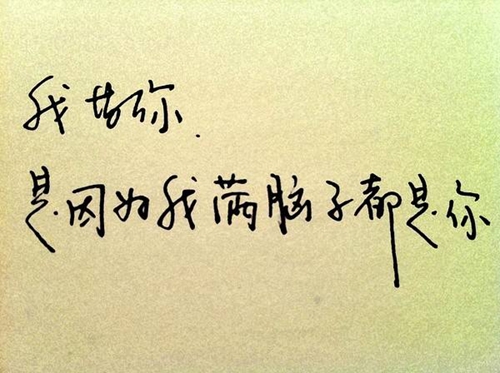 我找你.
是因为我满脑子都是你